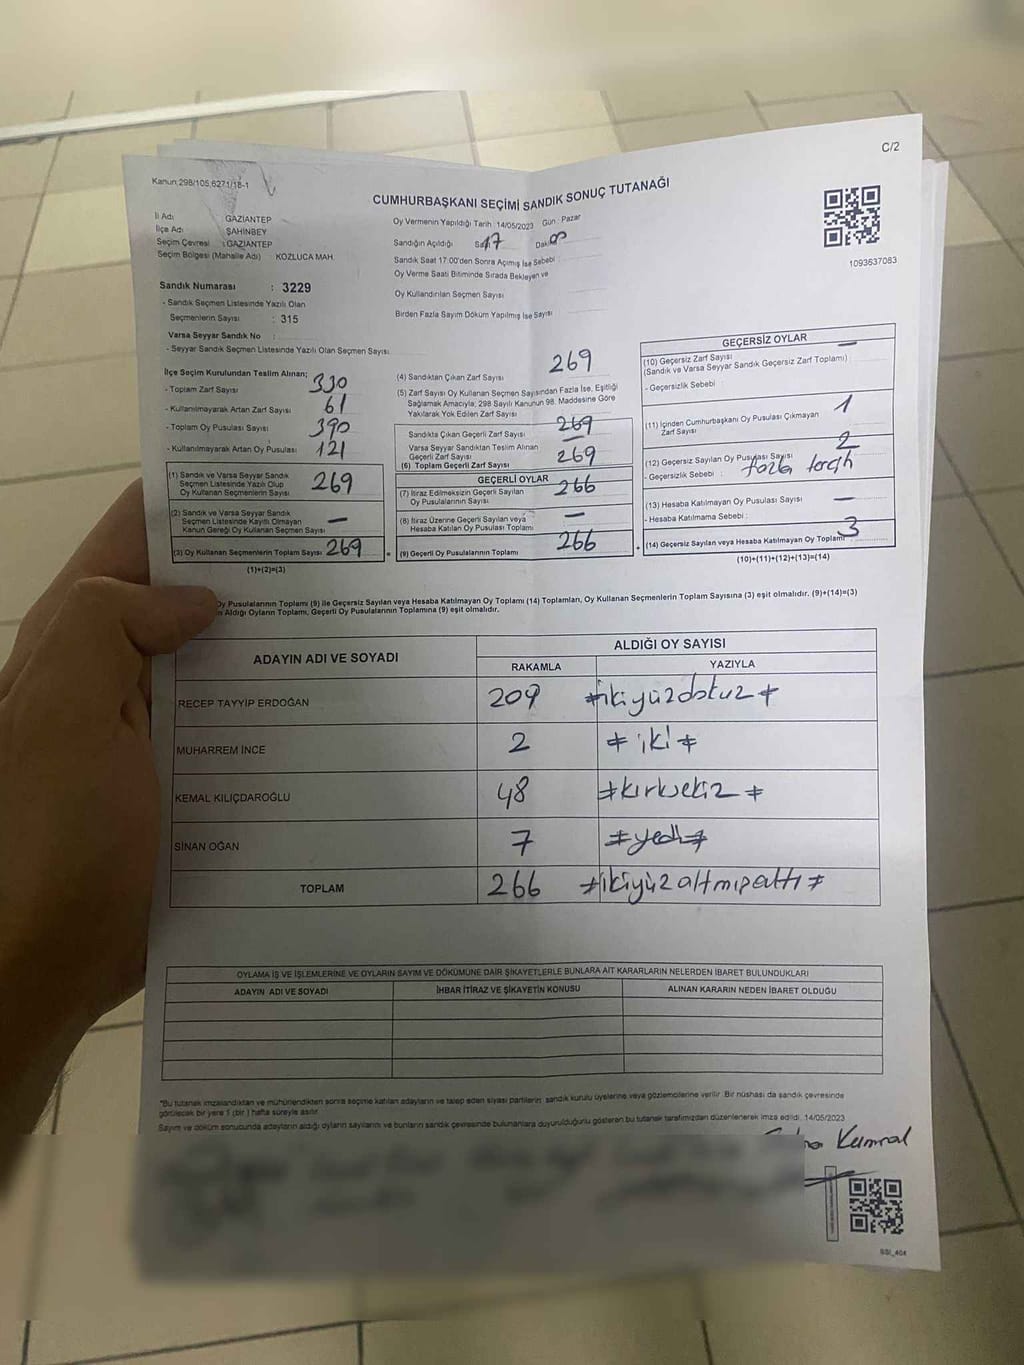 C/2
Kanun;298/105,6271/18-1
CUMHURBAŞKANI SEÇİMİ SANDIK SONUÇ TUTANAĞI
1093637083
İl Adı GAZİANTEP
İlçe Adı ŞAHİNBEY
Seçim Çevresi : GAZİANTEP
Seçim Bölgesi (Mahalle Adı) KOZLUCA MAH.
Oy Vermenin Yapıldığı Tarih : 14/05/2023 Gün : Pazar
Sandığın Açıldığı 17
Sandık Saat 17:00'den Sonra Açmış İse Sebebi :
Oy Verme Saati Bitiminde Sırada Bekleyen ve
Oy Kullandırılan Seçmen Sayısı
Birden Fazla Sayım Döküm Yapılmış İse Sayısı
Sandık Numarası : 3229
- Sandık Seçmen Listesinde Yazılı Olan
Seçmenlerin Sayısı : 315
Varsa Seyyar Sandık No :
- Seyyar Sandık Seçmen Listesinde Yazılı Olan Seçmen Sayısı
İlçe Seçim Kurulundan Teslim Alınan;
- Toplam Zarf Sayısı 330
- Kullanılmayarak Artan Zarf Sayısı 61
- Toplam Oy Pusulası Sayısı 390
- Kullanılmayarak Artan Oy Pusulası 121
(1) Sandık ve Varsa Seyyar Sandık
Seçmen Listesinde Yazılı Olup
Oy Kullanan Seçmenlerin Sayısı 269
(2) Sandık ve Varsa Seyyar Sandık
Seçmen Listesinde Kayıtlı Olmayan
Kanun Gereği Oy Kullanan Seçmen Sayısı —
(3) Oy Kullanan Seçmenlerin Toplam Sayısı 269
(1)+(2)=(3)
(4) Sandıktan Çıkan Zarf Sayısı 269
(5) Zarf Sayısı Oy Kullanan Seçmen Sayısından Fazla İse, Eşitliği
Sağlamak Amacıyla; 298 Sayılı Kanunun 98. Maddesine Göre
Yakılarak Yok Edilen Zarf Sayısı
Sandıkta Çıkan Geçerli Zarf Sayısı 269
Varsa Seyyar Sandıktan Teslim Alınan
Geçerli Zarf Sayısı —
(6) Toplam Geçerli Zarf Sayısı 269
GEÇERLİ OYLAR
(7) İtiraz Edilmeksizin Geçerli Sayılan
Oy Pusulalarının Sayısı 266
(8) İtiraz Üzerine Geçerli Sayılan veya
Hesaba Katılan Oy Pusulası Toplamı —
(9) Geçerli Oy Pusulalarının Toplamı 266
GEÇERSİZ OYLAR
(10) Geçersiz Zarf Sayısı —
(Sandık ve Varsa Seyyar Sandık Geçersiz Zarf Toplamı)
- Geçersizlik Sebebi :
(11) İçinden Cumhurbaşkanı Oy Pusulası Çıkmayan
Zarf Sayısı 1
(12) Geçersiz Sayılan Oy Pusulası Sayısı 2
- Geçersizlik Sebebi : fazla tercih
(13) Hesaba Katılmayan Oy Pusulası Sayısı —
- Hesaba Katılmama Sebebi :
(14) Geçersiz Sayılan veya Hesaba Katılmayan Oy Toplamı 3
(10)+(11)+(12)+(13)=(14)
Oy Pusulalarının Toplamı (9) ile Geçersiz Sayılan veya Hesaba Katılmayan Oy Toplamı (14) Toplamları, Oy Kullanan Seçmenlerin Toplam Sayısına (3) eşit olmalıdır. (9)+(14)=(3)
Aldığı Oyların Toplamı, Geçerli Oy Pusulalarının Toplamına (9) eşit olmalıdır.
ADAYIN ADI VE SOYADI ALDIĞI OY SAYISI
RAKAMLA YAZIYLA
RECEP TAYYİP ERDOĞAN 209 #ikiyüzdokuz#
MUHARREM İNCE 2 # iki #
KEMAL KILIÇDAROĞLU 48 #kırksekiz#
SİNAN OĞAN 7 #yedi#
TOPLAM 266 #ikiyüzaltmışaltı#
OYLAMA İŞ VE İŞLEMLERİNE VE OYLARIN SAYIM VE DÖKÜMÜNE DAİR ŞİKAYETLERLE BUNLARA AİT KARARLARIN NELERDEN İBARET BULUNDUKLARI
ADAYIN ADI VE SOYADI İHBAR İTİRAZ VE ŞİKAYETİN KONUSU ALINAN KARARIN NEDEN İBARET OLDUĞU
*Bu tutanak imzalandıktan ve mühürlendikten sonra seçime katılan adayların ve talep eden siyasi partilerin, sandık kurulu üyelerine veya gözlemcilerine verilir. Bir nüshası da sandık çevresinde
görülecek bir yere 1 (bir) hafta süreyle asılır.
Sayım ve döküm sonucunda adayların aldığı oyların sayılarını ve bunların sandık çevresinde bulunanlara duyurulduğunu gösteren bu tutanak tarafımızdan düzenlenerek imza edildi. 14/05/2023
Kumral